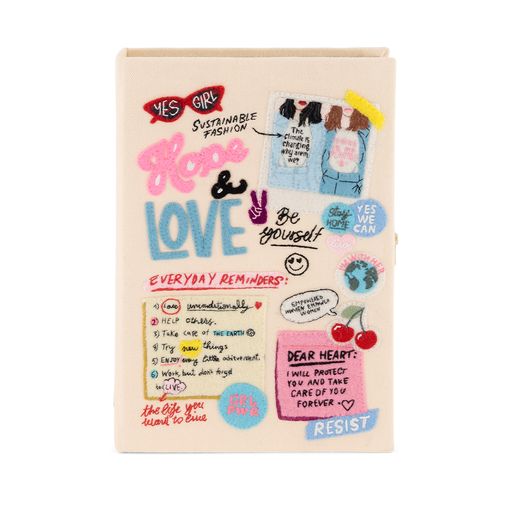 YES GIRL
SUSTAINABLE
FASHION
The
climate is
changing
why aren't
we?
Hope
&
LOVE
Be
yourself
Stay
HOME
YES
WE
CAN
EVERYDAY REMINDERS:
1) Love unconditionally
2) HELP others.
3) Take care of THE EARTH
4) Try new things
5) ENJOY every little achievement.
6) Work, but don't forget
to LIVE
the life you
want to live
GRL
PWR
EMPOWERED
WOMEN EMPOWER
WOMEN
DEAR HEART:
I WILL PROTECT
YOU AND TAKE
CARE OF YOU
FOREVER -
RESIST